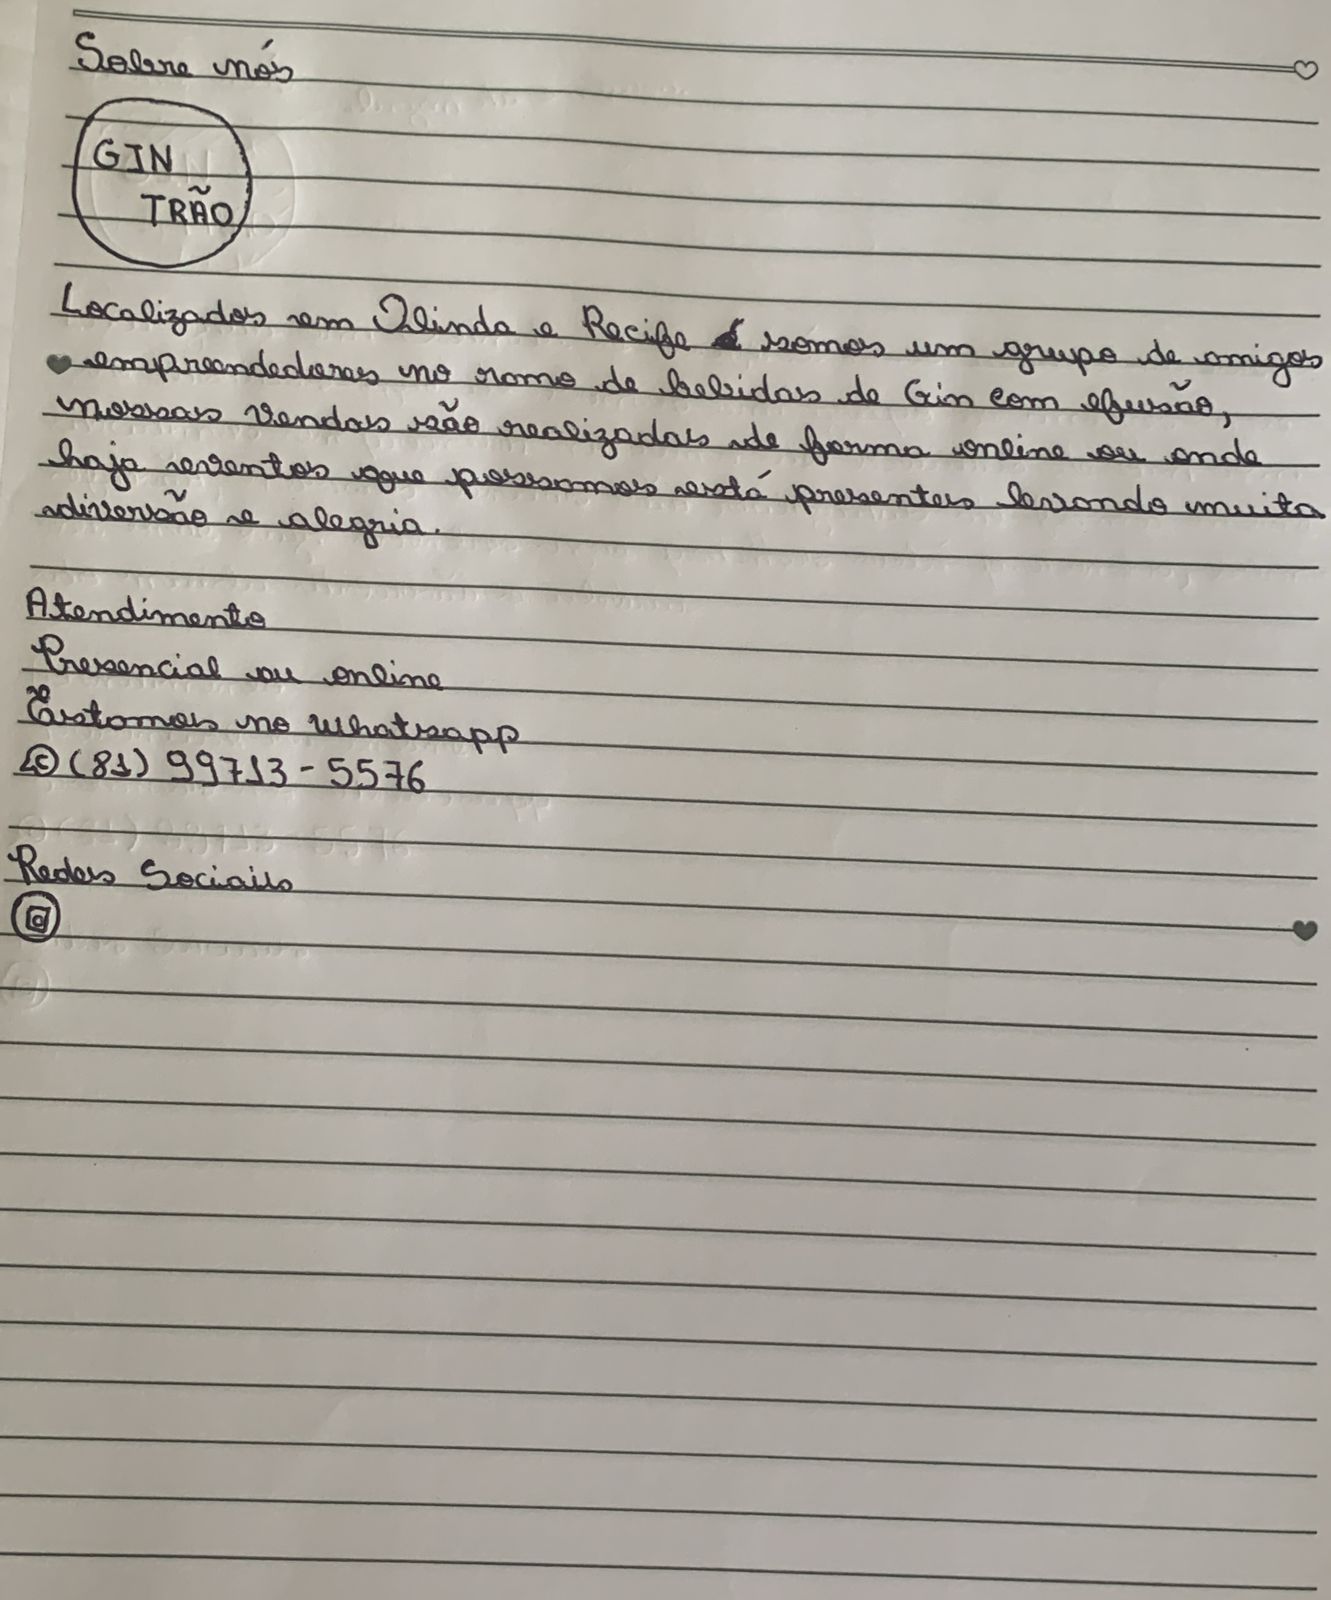 Sobre nós
GIN
TRÃO
Localizados em Olinda e Recife somos um grupo de amigos
empreendedores no ramo de bebidas de Gin com efusão,
nossas vendas são realizadas de forma online ou onde
haja eventos que possamos está presentes levando muita
diversão e alegria.
Atendimento
Presencial ou online
Estamos no whatsapp
(81) 99713-5576
Redes Sociais